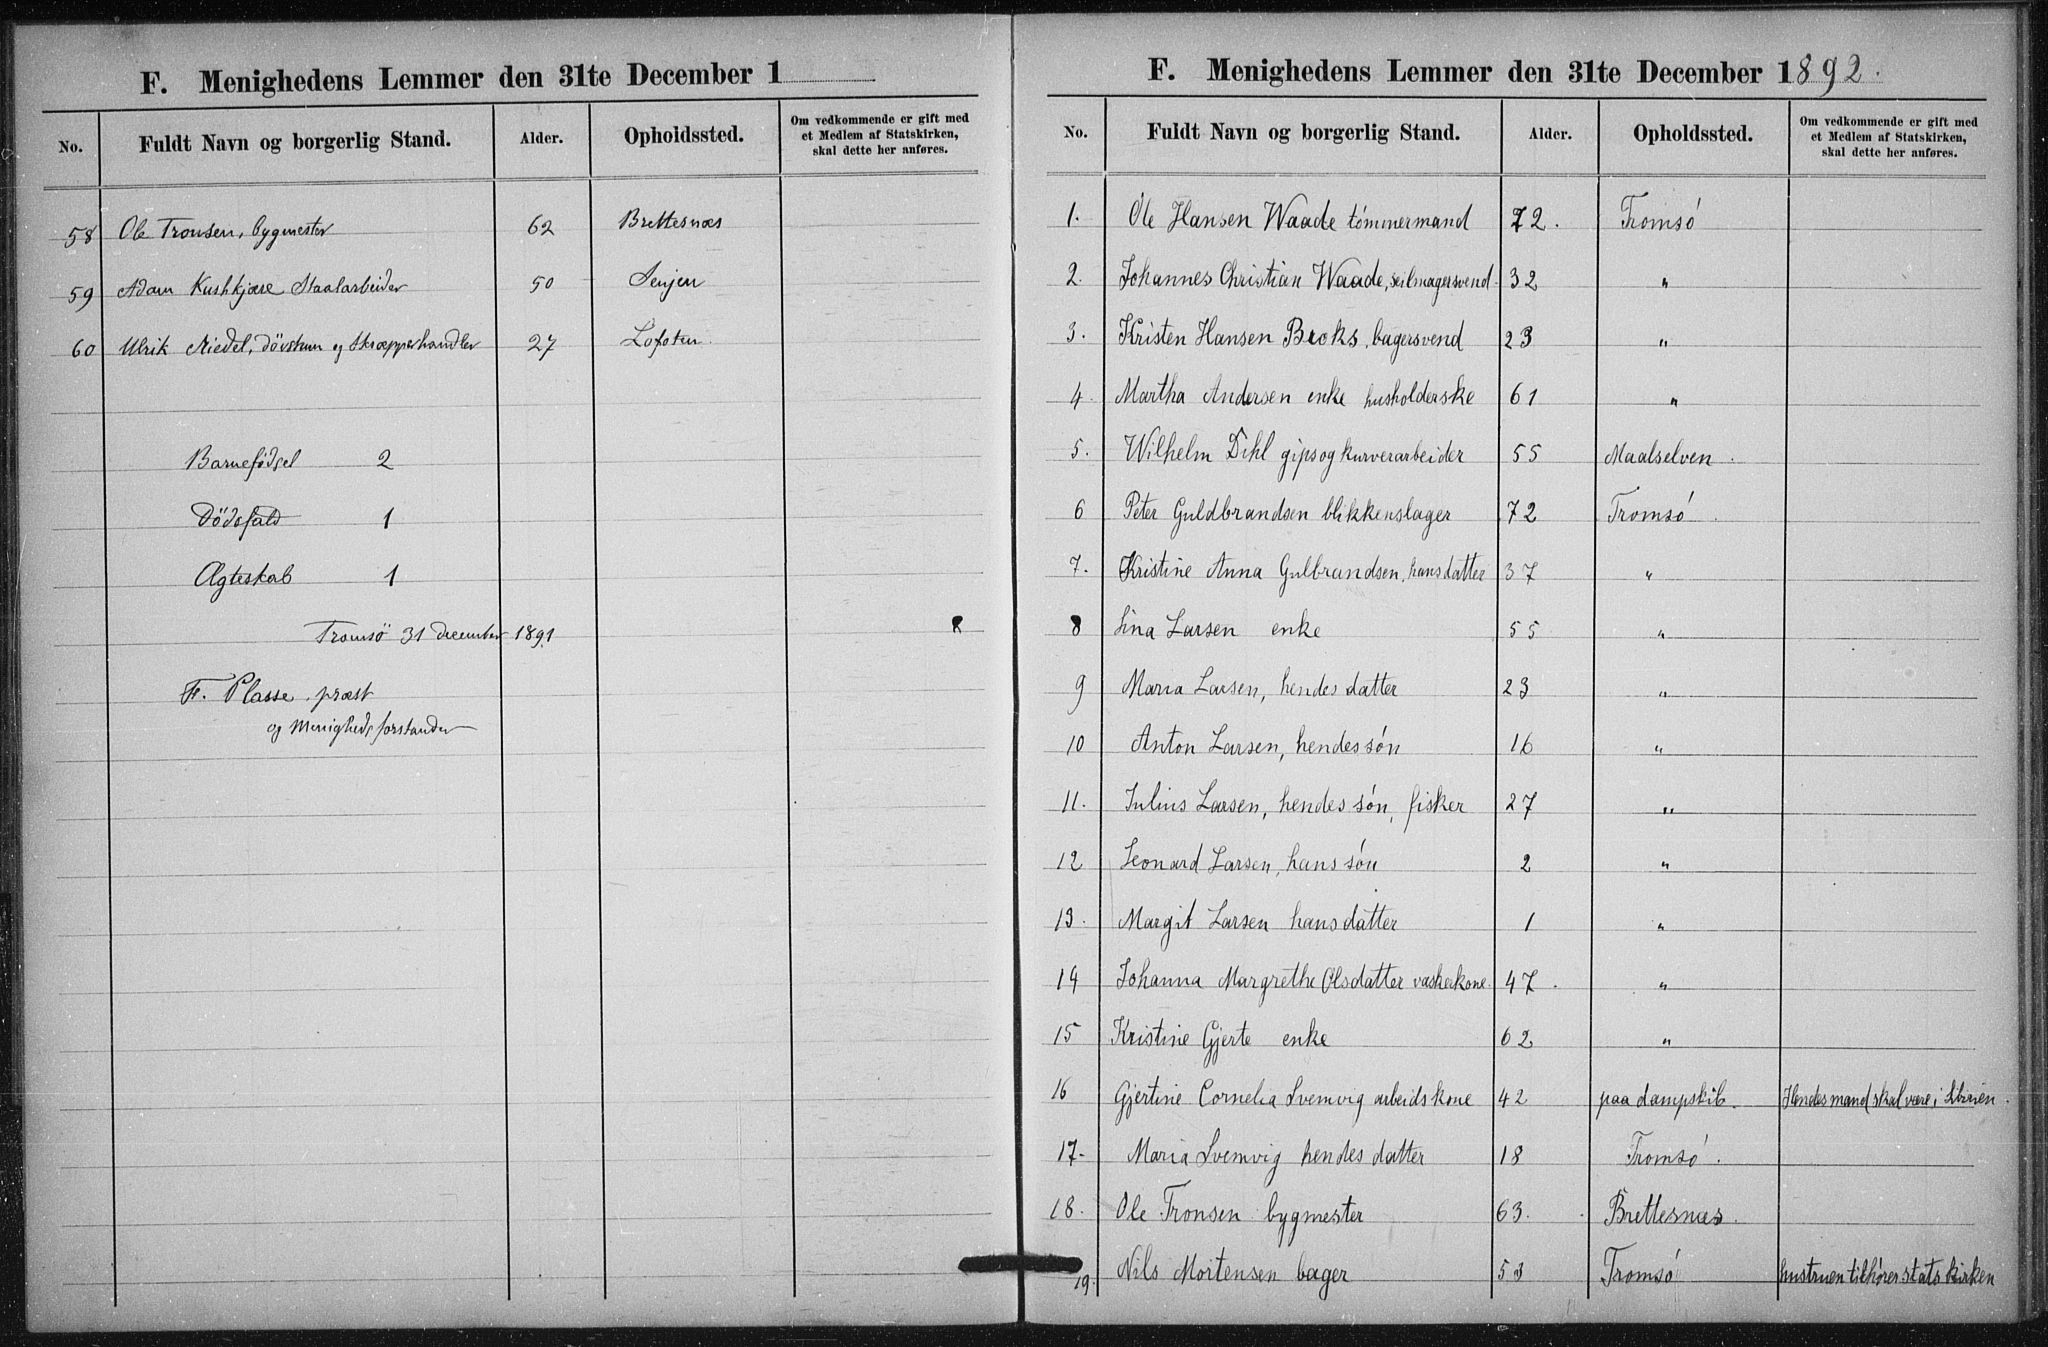 F. Menighedens Lemmer den 31te December 1
No. Fuldt Navn og borgerlig Stand. Alder. Opholdssted. Om vedkommende er gift med et Medlem af Statskirken, skal dette her anføres.
58 Ole Tronsen, bygmester 62 Brettesnæs
59 Adam Kushkjære Staalarbeider 50 Senjen
60 Ulrik Riedel, døvstum og Skræpperhandler 27 Lofoten
Barnefødsel 2
Dödsfald 1
Ægteskab 1
Tromsö 31 december 1891
F. Plasse, præst
og Menighedsforstander
8
F. Menighedens Lemmer den 31te December 1892.
No. Fuldt Navn og borgerlig Stand. Alder. Opholdssted. Om vedkommende er gift med et Medlem af Statskirken, skal dette her anføres.
1. Ole Hansen Waade tómmermand 72. Tromsó
2. Johannes Christian Waade, seilmagersvend 32 "
3. Kristen Hansen Broks, bagersvend 23 "
4. Martha Andersen enke husholderske 61 "
5. Wilhelm Dihl gips og kurverarbeider 55 Maalselven.
6 Peter Guldbrandsen blikkenslager 72 Tromsó.
7. Kristine Anna Gulbrandsen, hans datter 37 "
8 Lina Larsen enke 55 "
9 Maria Larsen, hendes datter 23 "
10 Anton Larsen, hendes són 16 "
11. Julius Larsen, hendes són, fisker 27 "
12 Leonard Larsen, hans són 2 "
13. Margit Larsen hans datter 1 "
14 Johanna Margrethe Olsdatter vaskekone 47. "
15 Kristine Gjerte enke 62 "
16 Gjertine Cornelia Svemvig arbeidskone 42 paa dampskib. Hendes mand skal være i Sibirien.
17. Maria Svemvig hendes datter 18 Tromsó.
18. Ole Tronsen bygmester 63. Brettesnæs.
19. Nils Mortensen bager 53 Tromsó hustruen tilhører statskirken